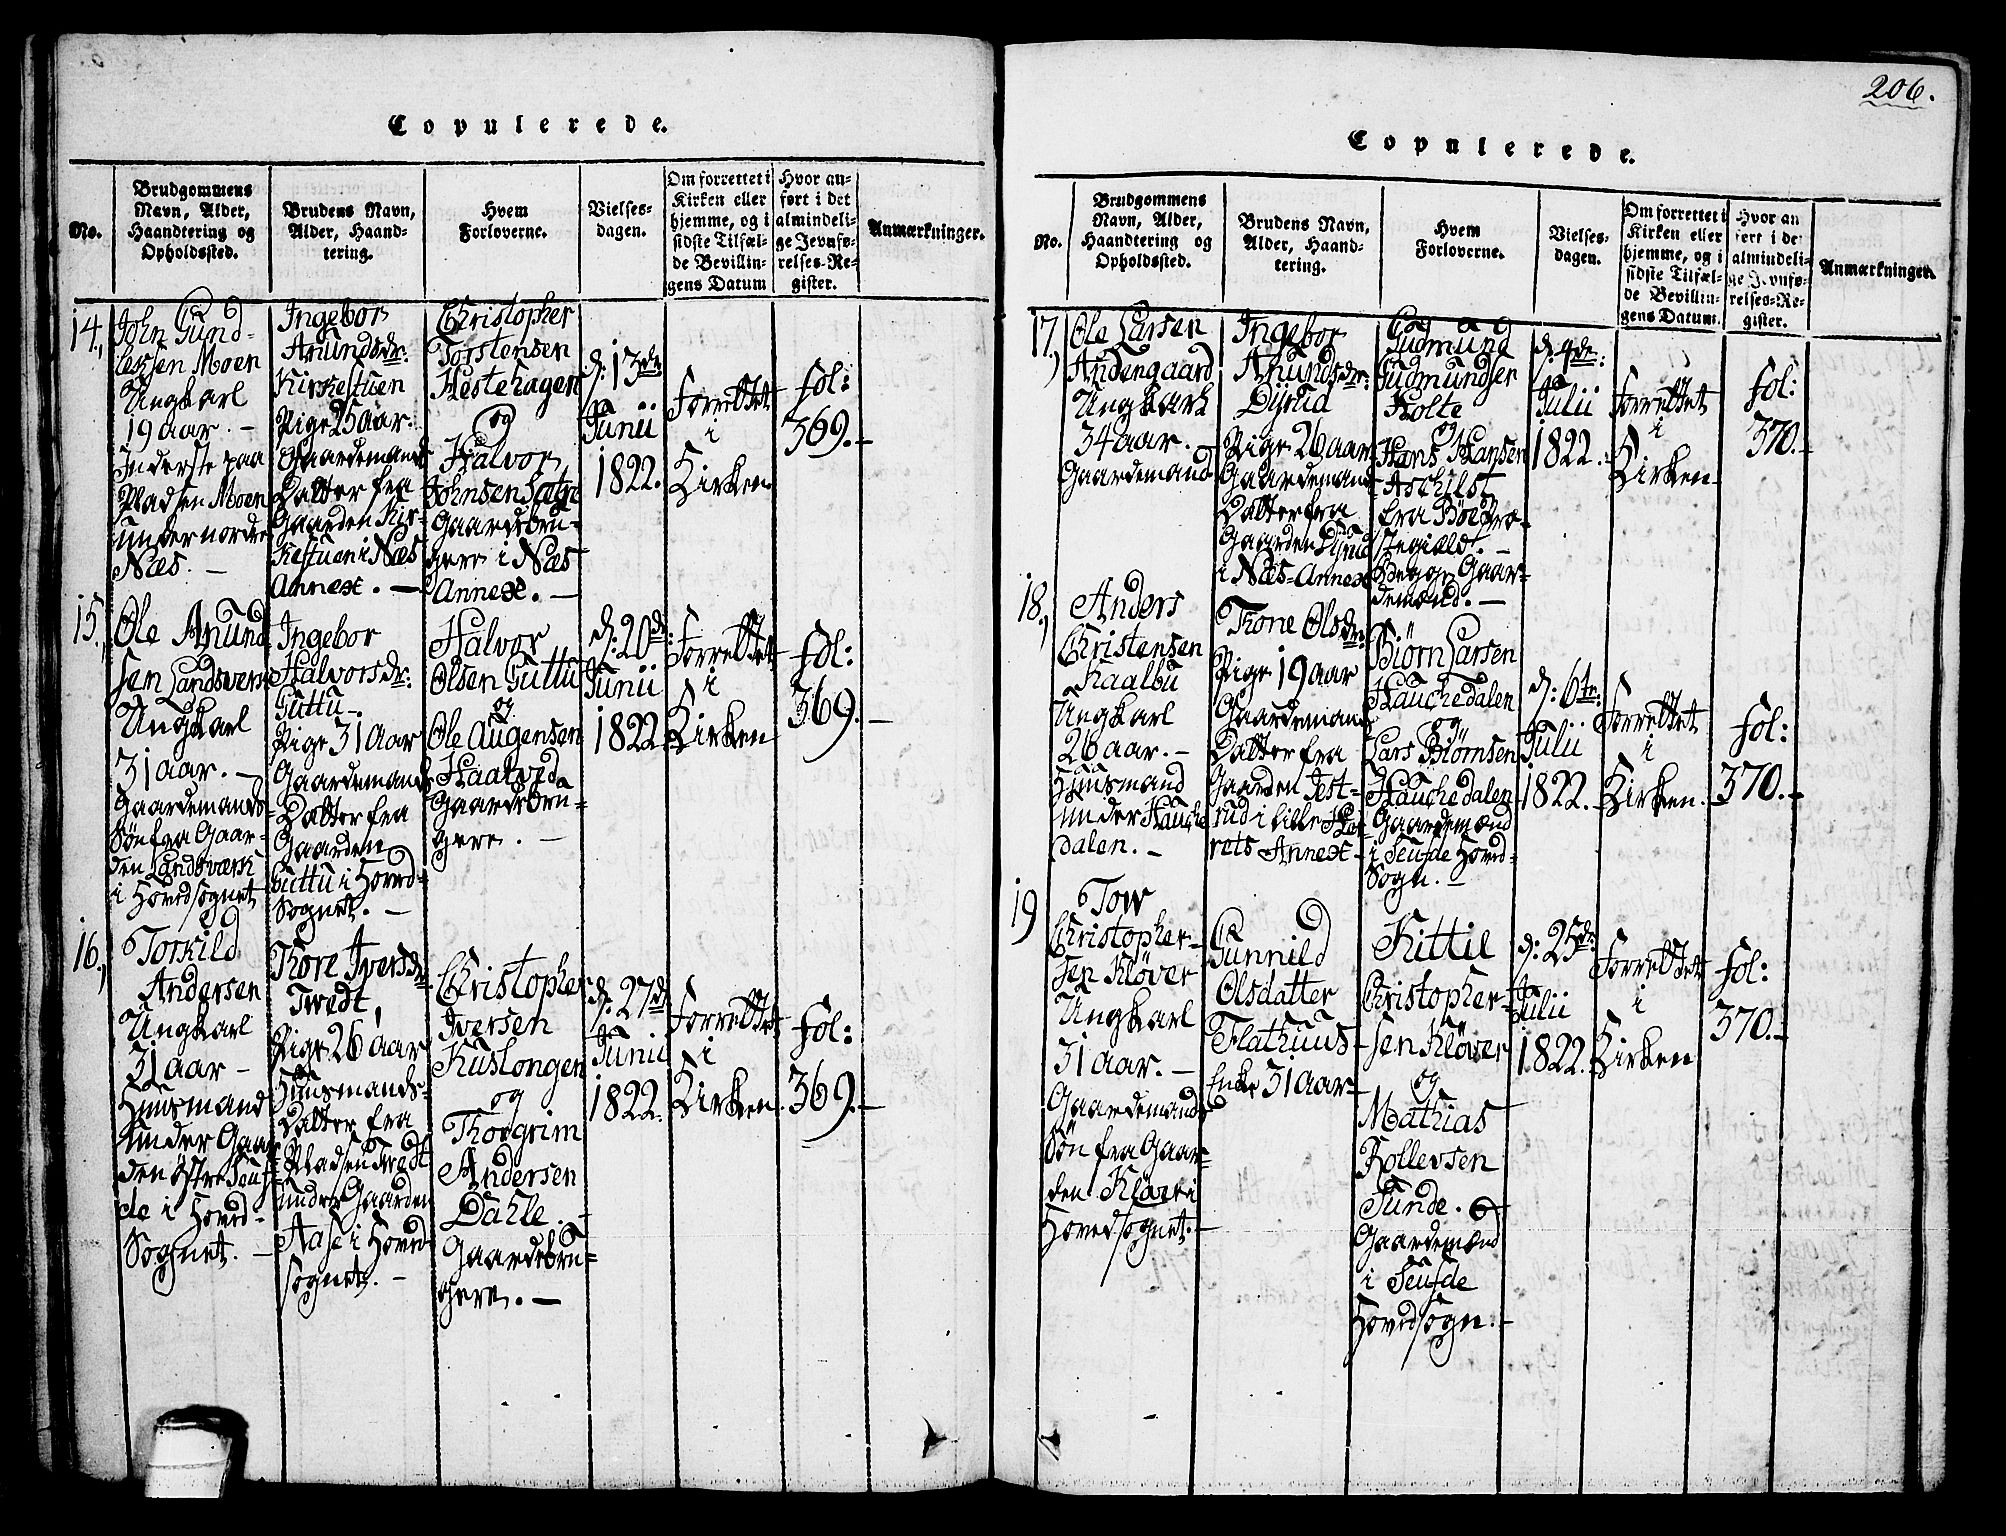 206.
Copulerede.
No.
Brudgommens
Navn, Alder,
Haandtering og
Opholdssted.
Brudens Navn,
Alder, Haand-
tering.
Hvem
Forloverne.
Vielses-
dagen.
Om forrettet i
Kirken eller
hjemme, og i
sidste Tilfæl-
de Bevillin-
gens Datum
Hvor an-
ført i det
almindeli-
ge Jevnfø-
relses-Re-
gister.
Anmærkninger.
14.,
John Gund-
lexsen Moen
Ungkarl
19 aar. -
Inderste paa
Pladsen Moen
under nordre
Næs. -
Ingebor
Anundsdr:
Kirkestuen
Pige 25 aar.
Gaardemands
Datter fra
Gaarden Kir-
kestuen i Næs
Annext. -
Christopher
Torstensen
Hestehagen
og
Halvor
Johnsen
Gaardsbru-
gere i Næs
Annext. -
d: 13de
Junii
1822.
Forrettet
i
Kirken.
fol:
369. -
15.,
Ole Anund
sen Landsverk
Ungkarl
31 aar. -
Gaardemands
Søn fra Gaar-
den Landsværk
i Hovedsognet
Ingebor
Halvorsdr:
Guttu -
Pige 31 Aar
Gaardemands
Datter fra
Gaarden
Guttu i Hoved-
Sognet. -
Halvor
Olsen Guttu
og
Ole Augensen
Haatvedt
Gaardsbru-
gere. -
d: 20de:
Junii
1822
Forrettet
i
Kirken
fol:
369. -
16.,
Torkild
Andersen
Ungkarl
31 aar -
Huusmand
under Gaar
den østre Seuf
de i Hoved-
Sognet. -
Thore Iversdr
Twedt,
Pige 26 aar
Huusmands-
Datter fra
Pladsen Tvedt
under Gaarden
Aase i Hoved-
sognet. -
Christopher
Iversen
Kuslongen
og
Thorgrim
Andersen
Dahle. -
Gaardebru-
gere. -
d: 27de
Junii
1822.
Forrettet
i
Kirken.
fol:
369. -
Copulerede.
No.
Brudgommens
Navn, Alder,
Haandtering og
Opholdssted.
Brudens Navn,
Alder, Haand-
tering.
Hvem
Forloverne.
Vielses-
dagen.
Om forrettet i
Kirken eller
hjemme, og i
sidste Tilfæl-
de Bevillin-
gens Datum.
Hvor an
ført i det
almindeli-
ge Jevnfø-
relses-Re-
gister.
Anmærkninger.
17.,
Ole Larsen
Andengaard
Ungkarl
34 aar. -
Gaardemand
Ingebor
Anundsdr:
Dyrud
Pige 26 aar
Gaardemands
Datter fra
Gaarden Dyrud
i Næs-Annext
Gudmund
Gudmundsen
Holte
og
Hans Hansen
Aschilst
fra Bøe Præ-
stegield. -
Begge Gaar-
demænd. -
d: 4de:
Julii
1822.
Forrettet
i
Kirken -
fol:
370. -
18.,
Anders
Christensen
Kaalbu
Ungkarl
26 aar. -
Huusmand
under Hauche
dalen. -
Thone Olsdr:
Pige 19 aar
Gaardemands
Datter fra
Gaarden Jest-
rud i Lille Her
rets Annext -
Biørn Larsen
Hauchedalen
og
Lars Biørnsen
Hauchedalen
Gaardemænd
i Seufde Hoved-
Sogn. -
d: 6te:
Julii
1822.
Forrettet
i
Kirken.
fol:
370. -
19
Tov
Christopher-
sen Kløver
Ungkarl
31 aar. -
Gaardemands
Søn fra Gaar-
den Kløver i
Hovedsognet. -
Gunnild
Olsdatter
Flathuus -
Enke 31 Aar -
Kittil
Christopher-
sen Kløver
og
Mathias
Kollevsen
Sunde.
Gaardemænd
i Seufde
Hovedsogn. -
d: 25de
Julii
1822.
Forrettet
i
Kirken
fol:
370. -